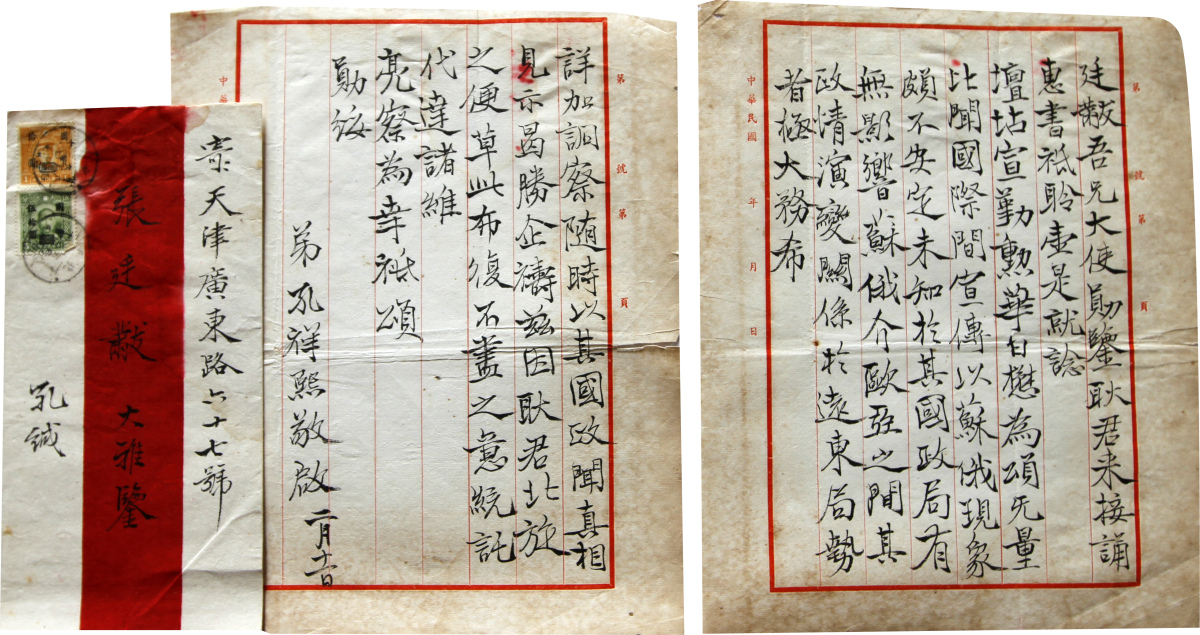 廷黻吾兄大使勛鑒耿君来接誦
惠書祇聆壹是就諗
壇坫宣勤勲華日懋為頌无量
比聞國際間宣傳以蘇俄現象
頗不安定未知於其國政局有
無影響蘇俄介歐亞之間其
政情演變關係於遠東局勢
者極大務希
第 號 第 頁
中華民國 年 月 日
詳加調察随時以其國政聞真相
見示曷勝企禱茲因耿君北旋
之便草此布復不盡之意統託
代達諸維
亮察為幸祇頌
勛綏
弟孔祥熙敬啟 二月十一日
第 號 第 頁
中華
寄天津廣東路六十七號
張廷黻大雅鑒
孔緘